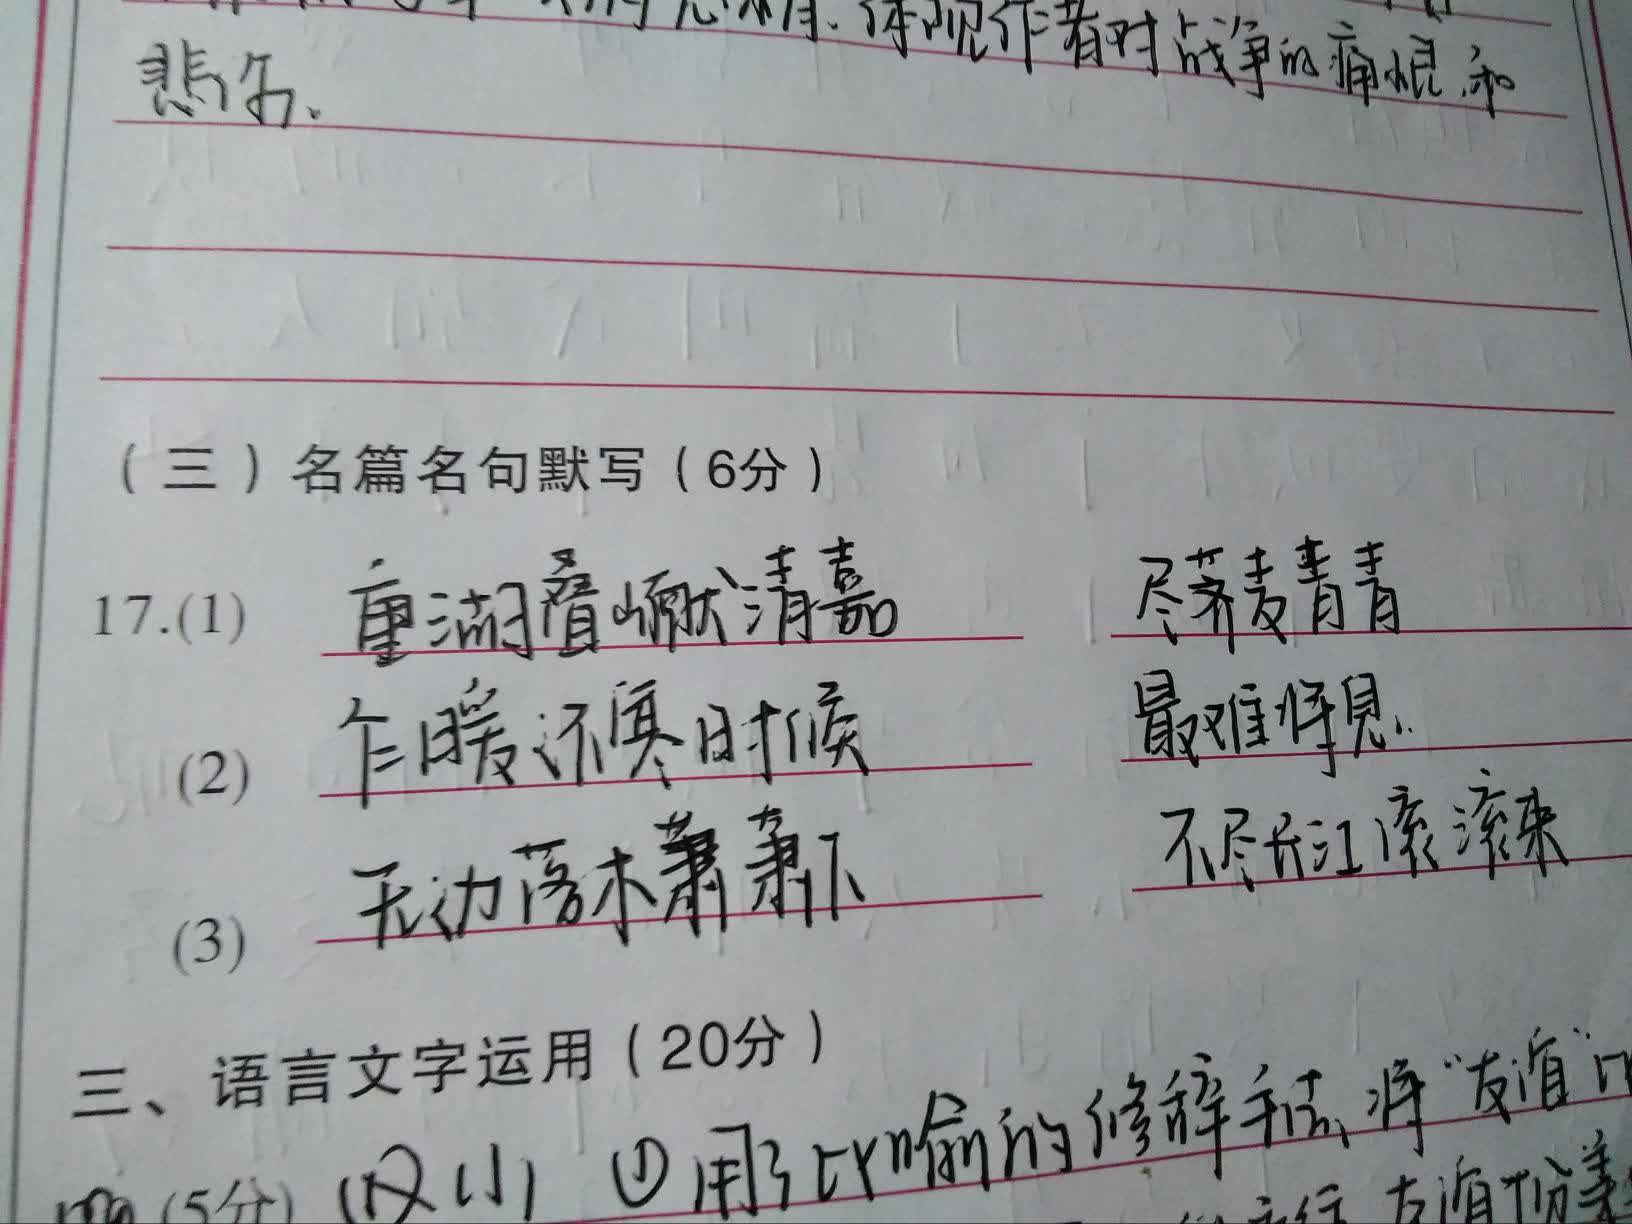 体现作者对战争的痛恨和
悲伤.
（三）名篇名句默写（6分）
17.(1) 重湖叠巘清嘉 尽荠麦青青
(2) 乍暖还寒时候 最难将息.
(3) 无边落木萧萧下 不尽长江滚滚来
三、语言文字运用（20分）
(5分) ①用了比喻的修辞手法,将“友谊”